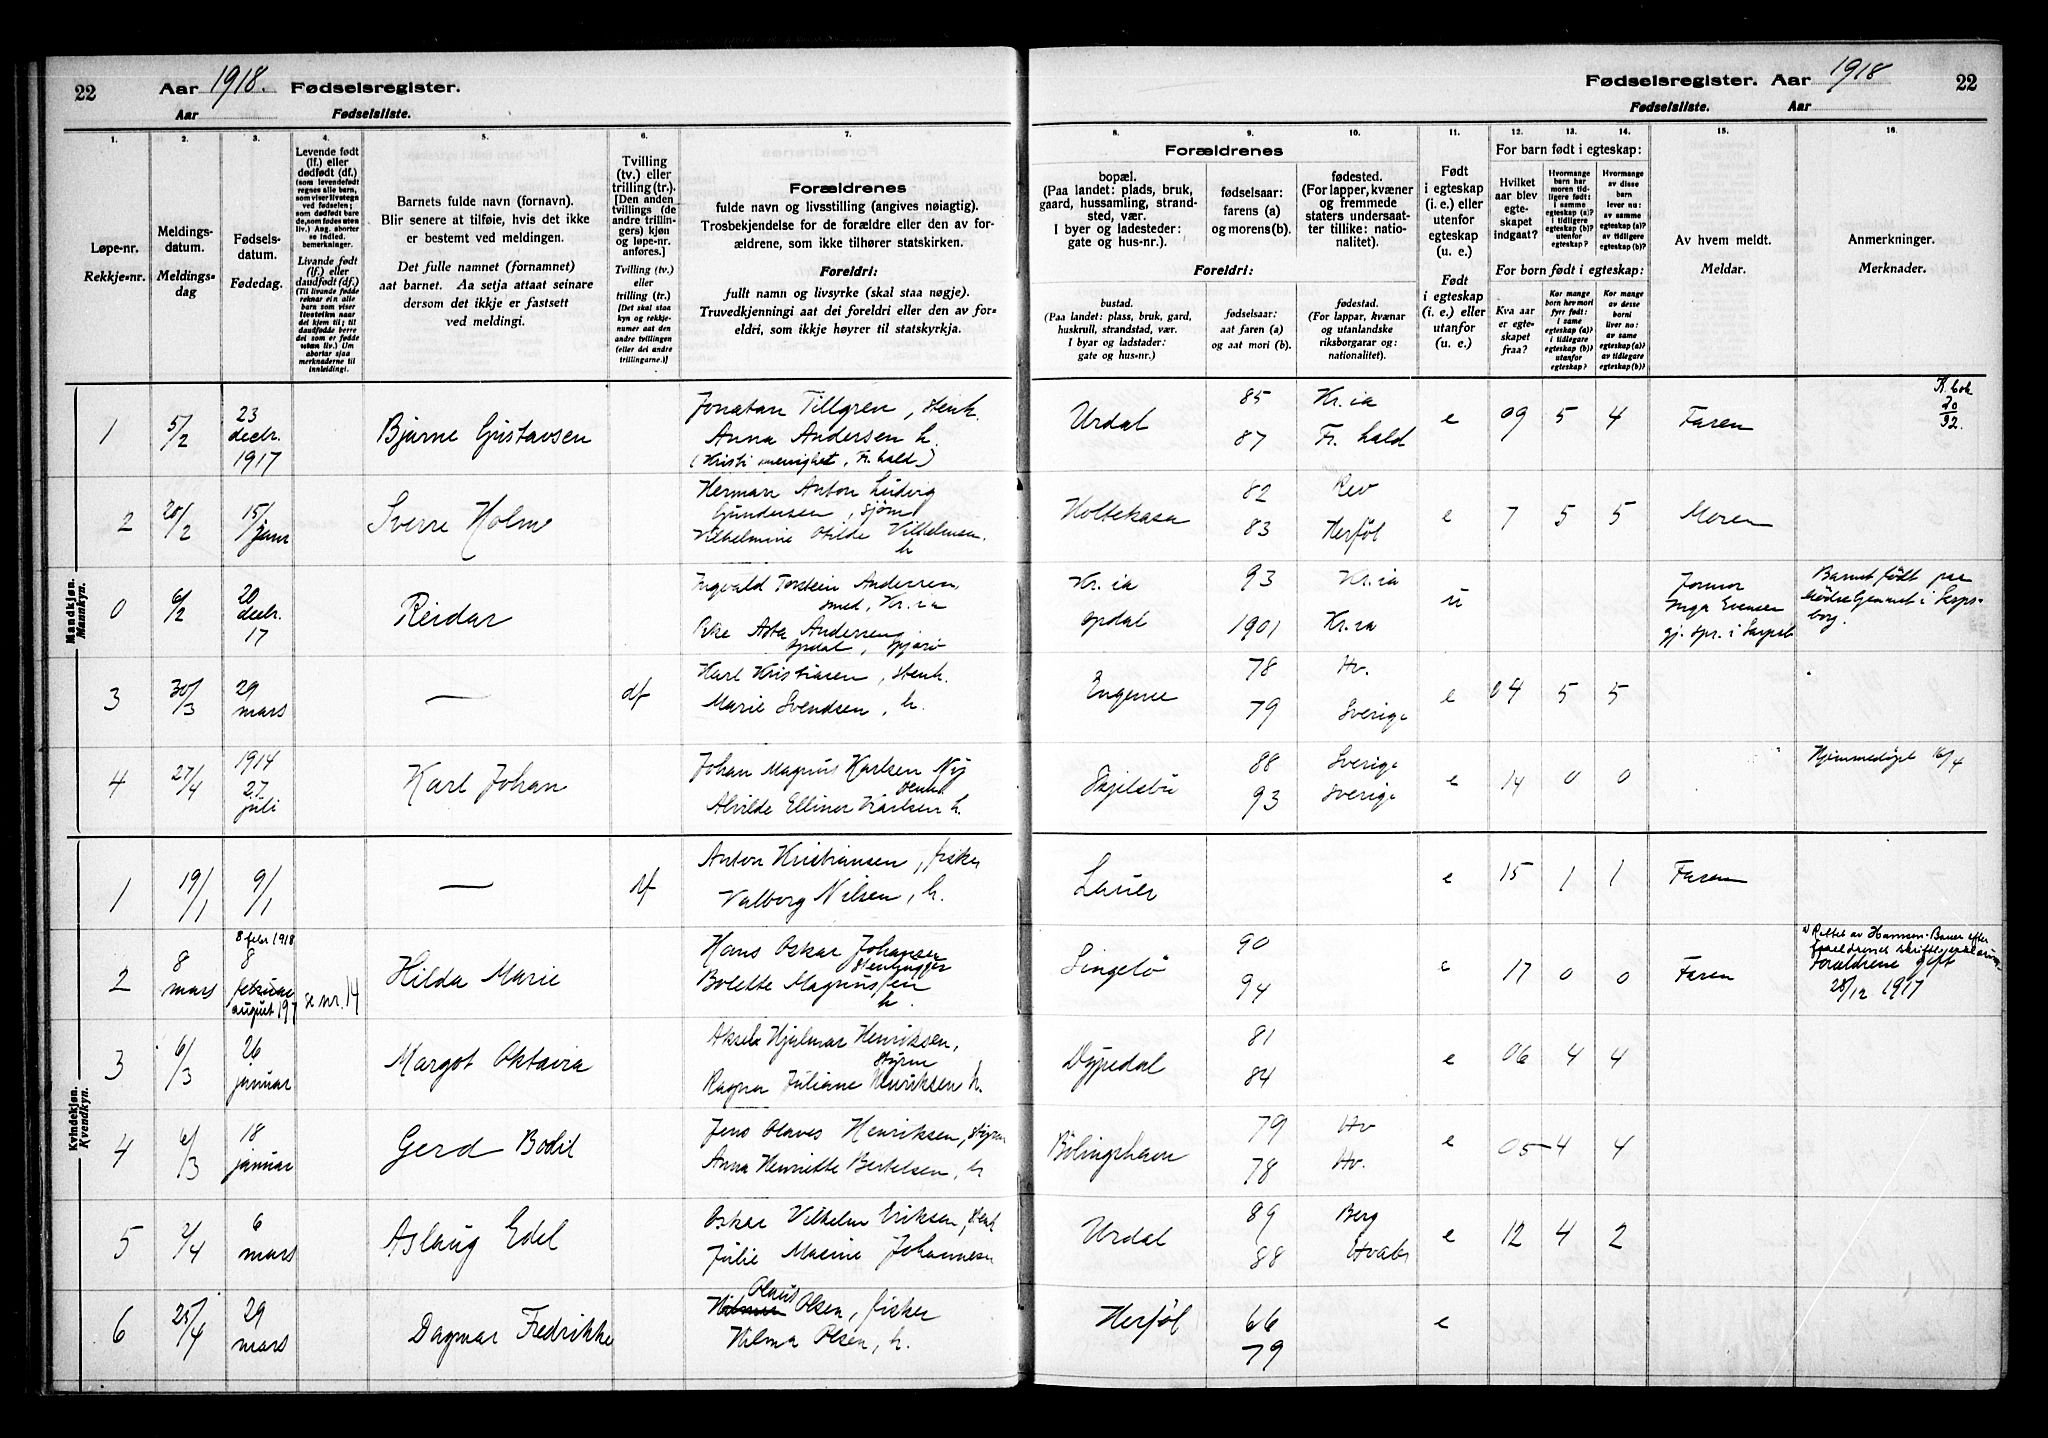 22 Aar 1918. Fødselsregister.
Aar Fødselsliste.
Fødselsregister. Aar 1918 22
Fødselsliste. Aar
1.
Løpe-nr.
Rekkje-nr.
2.
Meldings-
datum.
Meldings-
dag
3.
Fødsels-
datum.
Fødedag.
4.
Levende født
(lf.) eller
dødfødt (df.)
(som levendefødt
regnes alle barn,
som viser livstegn
ved fødselen;
som dødfødt barn
de, som fødes uten
liv.) Ang. aborter
se indled.
bemerkninger.
Livande født
(lf.) eller
daudfødt (df.)
(Til livande fødde
reknar ein alle
born som viser
livsteikn naar
dei kjem til; til
daudfødde berre
dei som er fødde
utan liv.) Um
abortar sjaa
merknaderne til
innleidingi.
5.
Barnets fulde navn (fornavn).
Blir senere at tilføie, hvis det ikke
er bestemt ved meldingen.
Det fulle namnet (fornamnet)
aat barnet. Aa setja attaat seinare
dersom det ikkje er fastsett
ved meldingi.
6.
Tvilling
(tv.) eller
trilling (tr.).
[Den anden
tvillings (de
andre trillin-
gers) kjøn
og løpe-nr.
anføres.]
Tvilling (tv.)
eller
trilling (tr.)
[Det skal staa
kyn og rekkje-
numer aat den
andre tvillingen
(eller dei andre
trillingarne.)]
7.
Forældrenes
fulde navn og livsstilling (angives nøiagtig).
Trosbekjendelse for de forældre eller den av for-
ældrene, som ikke tilhører statskirken.
Foreldri:
fullt namn og livsyrke (skal staa nøgje).
Truvedkjenningi aat dei foreldri eller den av for-
eldri, som ikkje høyrer til statskyrkja.
Forældrenes
8.
bopæl.
(Paa landet: plads, bruk,
gaard, hussamling, strand-
sted, vær.
I byer og ladesteder:
gate og hus-nr.).
Foreldri:
bustad.
(Paa landet: plass, bruk, gard,
huskrull, strandstad, vær.
I byar og ladstader:
gate og hus-nr.)
9.
fødselsaar:
farens (a)
og morens (b).
fødselsaar:
aat faren (a)
og aat mori (b).
10.
fødested.
(For lapper, kvæner
og fremmede
staters undersaat-
ter tillike: natio-
nalitet).
fødestad.
(For lappar, kvænar
og utanlandske
riksborgarar og:
nationalitet).
11.
Født
i egteskap
(i. e.) eller
utenfor
egteskap
(u. e.)
Født
i egteskap
(i. e.) eller
utanfor
(u. e.)
For barn født i egteskap:
12.
Hvilket
aar blev
egte-
skapet
indgaat?
13.
Hvormange
barn har
moren tid-
ligere født:
i samme
egteskap (a)?
i tidligere
egteskap (b)?
utenfor
egteskap?
14.
Hvormange
av disse
barn
lever nu:
av samme
egteskap (a)?
av tidligere
egteskap (b)?
For born født i egteskap:
Kva aar
er egte-
skapet
fraa?
Kor mange
born hev mori
fyrr født:
i same
egteskap (a)?
i tidlegare
egteskap (b)?
utanfor
egteskap?
Kor mange
av desse
borni
liver no:
av same
egteskap (a)?
av tidlegare
egteskap (b)?
15.
Av hvem meldt.
Meldar.
16.
Anmerkninger.
Merknader.
Mandkjøn.
Mannkyn.
1 5/2 23 decbr. 1917 Bjarne Gustavsen
Jonatan Tillgren, stenh.
Anna Andersen h.
(Kristi menighet, Fr.hald)
Urdal 85 87 Kr.ia Fr.hald e 09 5 4 Faren K.bok 20/92.
2 20/2 15/ jan Sverre Holm
Herman Anton Ludvig
Gundersen, sjøm
Vilhelmine Otilde Vilhelmsen.
h
Holtekasa 82 83 Rev Herføl e 7 5 5 Moren
0 6/2 20 decbr. 17 Reidar
Ingvald Torstein Andersen,
smed, Kr.ia
Aasta Andersen
Opdal, Spjærø
Kr.ia Opdal 93 1901 Kr.ia Kr.ia u
Jormor
Inga Evensen
gj. spr. i Sarpsb
Barnet født paa
Mødrehjemmet i Sarps-
borg.
3 30/3 29 mars — df
Karl Kristiansen, stenh.
Marie Svendsen, h.
Engene 78 79 Hv. Sverige e 04 5 5
4 27/4 1914 27 juli Karl Johan
Johan Magnus Karlsen Ny
stenh
Alvilde Ellinor Karlsen h.
Skjelsbu 88 93 Sverige Sverige e 14 0 0 Hjemmedøpt 16/4
Kvindekjøn.
Kvendkyn.
1 19/1 9/1 — df
Anton Kristiansen, fisker
Valborg Nilsen, h.
Lauer e 15 1 1 Faren
2 8 mars 8 febr 1918 8 februar august 197 se nr. 14 Hilda Marie
Hans Oskar Johansen
Stenhugger
Bolette Magnussen
h.
Singelø 90 94 e 17 0 0 Faren
Rettet av Hansen-Bauer efter
forældrenes skriftlige erklæring
Forældrene gift
28/12 1917
3 6/3 26 januar Margot Oktavia
Aksel Hjalmar Henriksen,
styrm
Ragna Juliane Henriksen h.
Dypedal 81 84 e 06 4 4
4 6/3 18 januar Gerd Bodil
Jens Olaves Henriksen, styrm
Anna Henriette Bertelsen, h
Bølingshavn 79 78 Hv Hv. e 05 4 4
5 2/4 6 mars Aslaug Edel
Oskar Vilhelm Eriksen, stenh
Julie Marine Johannesen
Urdal 89 88 Berg Hvaler e 12 4 2
6 25/4 29 mars Dagmar Fredrikke
Olaus
Olsen, fisker
Hilma Olsen, h.
Herføl 66 79 e